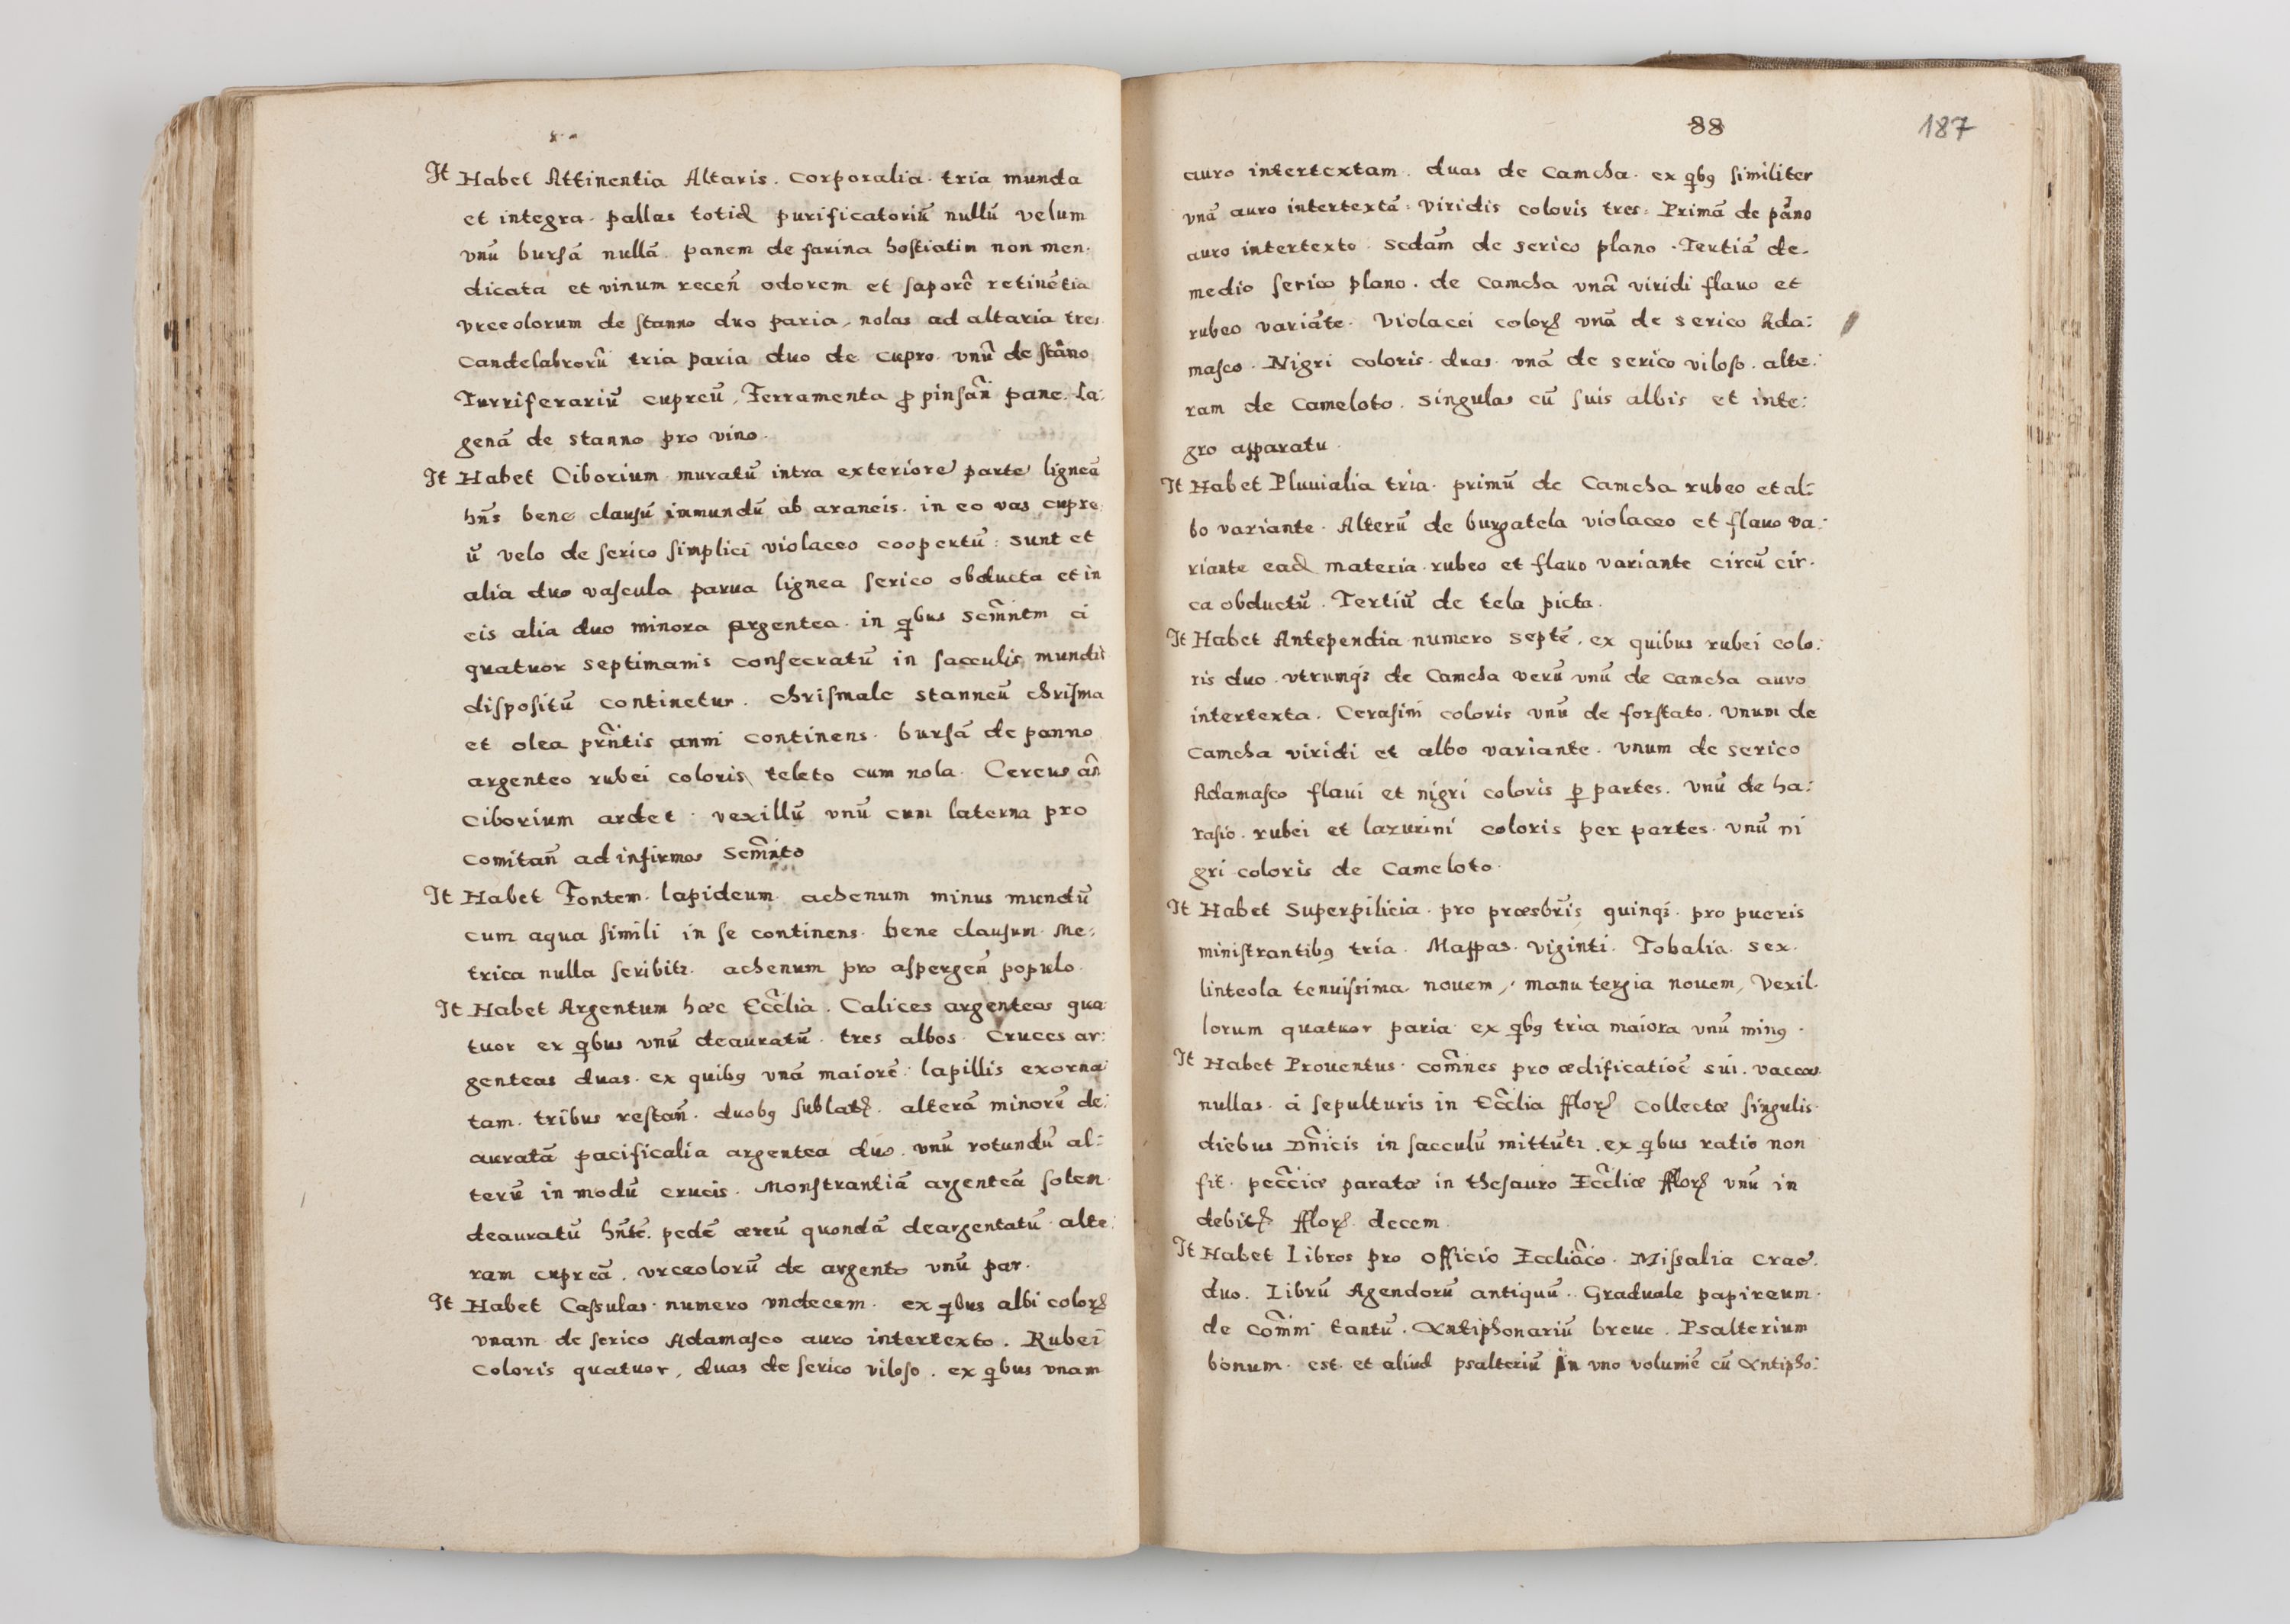 It Habet Attinentia Altaris. Corporalia. tria munda
et integra. pallas totid purificatoriū nullū velum
vnū burſā nullā. panem de farina hoſtiatim non men-
dicata et vinum receñ odorem et ſaporē retinētia
vrceolorum de ſtanno duo paria, nolas ad altaria tres
Candelabrorū tria paria duo de cupro. vnū de ſtāno
Turriferariū cupreū, Ferramenta ꝓ pinſañ pane. La:
genā de stanno pro vino.
It Habet Ciborium muratū intra exteriorē partē ligneā
hñs bene clauſū immundū ab araneis. in eo vas cupre
ū velo de ſerico ſimplici violaceo coopertū: sunt et
alia duo vaſcula parua lignea ſerico obducta et in
eis alia duo minora argentea. in qbus scm̄ntm à
quatuor septimanis conſecratū in ſacculis mundis
diſpoſitū continetur. Chriſmale stanneū chriſma
et olea pr̄ntis anni continens. burſā de panno
argenteo rubei coloris teleto cum nola. Cereus añ
ciborium ardet. vexillū vnū cum laterna pro
comitañ ad infirmos scm̄nto
It Habet Fontem. lapideum. achenum minus mundū
cum aqua ſimili in ſe continens. bene clauſum. Me:
trica nulla ſcribitꝛ. achenum pro aſpergeñ populo.
It Habet Argentum hæc Eccl̄ia. Calices argenteos qua
tuor ex qbus vnū deauratū. tres albos. Cruces ar:
genteas duas. ex quibꝯ vnā maiorē. lapillis exorna
tam. tribus reſtañ. duobꝯ ſublatꝭ. alterā minorē de:
auratā pacificalia argentea duo. vnū rotundū al:
terū in modū crucis. Monſtrantiā argenteā ſolen.
deauratū hñtē. pedē æreū quondā deargentatū. alte:
ram cupreā. vrceolorū de argento vnū par.
It Habet Caſsulas. numero vndecem. ex qbus albi colorꝭ
vnam de ſerico Adamaſco auro intertexto. Rubei
Coloris quatuor, duas de ſerico viloſo. ex qbus vnam
88
187
auro intertextam. duas de Camcha. ex qbꝯ ſimiliter
vnā auro intertextā: viridis coloris tres: Primā de pāno
auro intertexto. Sedām de serico plano. Tertiā de-
medio ſerico plano. de Camcha vnā viridi flauo et
rubeo variāte. Violacei colorꝭ vnā de serico Ada:
maſco. Nigri coloris. duas. vnā de serico viloſo. alte:
ram de Cameloto. singulas cū ſuis albis et inte:
gro apparatu.
It Habet Pluuialia tria. primū de Camcha rubeo et al:
bo variante. Alterū de burgatela violaceo et flauo va:
riante ead materia rubeo et flauo variante circū cir-
ca obductū. Tertiū de tela picta.
It Habet Antependia numero septē. ex quibus rubei colo:
ris duo. vtrumqꝫ de Camcha verū vnū de camcha auro
intertexta. Ceraſini coloris vnū de forſtato. Vnum de
camcha viridi et albo variante. vnum de serico
Adamaſco flaui et nigri coloris ꝑ partes. Vnū de ha:
raſio. rubei et lazurini coloris per partes. vnū ni
gri coloris de Cameloto.
It Habet Superpilicia. pro præsbr̄is quinqꝫ. pro pueris
miniſtrantibꝯ tria. Mappas. viginti. Tobalia. sex.
linteola tenuiſsima. nouem, manutergia nouem, Vexil-
lorum quatuor paria ex qbꝯ tria maiora vnū minꝯ.
It Habet Prouentus. com̄nes pro ædificatioē sui. vaccas
nullas. à ſepulturis in Eccl̄ia fflorꝭ Collectæ ſingulis
diebus Dn̄icis in ſacculū mittūtꝛ. ex qbus ratio non
fit. pecc̄iæ paratæ in theſauro Eccl̄iæ fflorꝭ vnū in
debitꝭ fflorꝭ decem
It Habet Libros pro officio Eccliāco. Miſsalia Crac.
duo. Librū Agendorū antiquū. Graduale papireum.
de com̄m̄i tantū. Antiphonariū breue. Psalterium
bonum. est. et aliud psalteriū in vno volumiē cū Antipho: